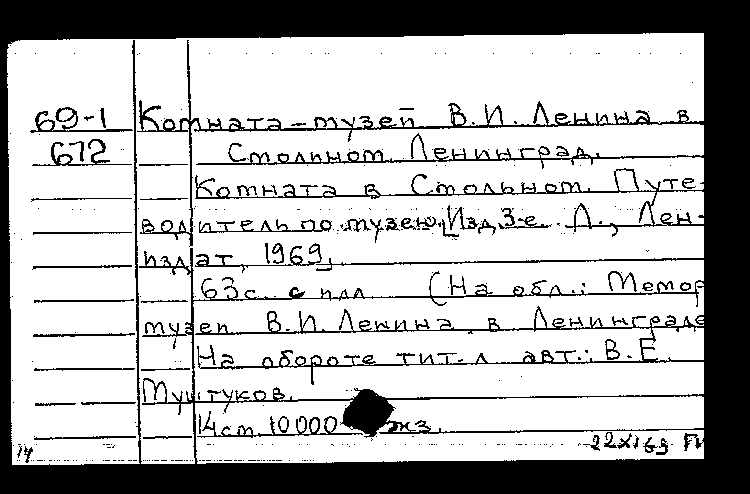 69-1 Комната-музей В.И. Ленина в
672 Смольном. Ленинград.
Комната в Смольном. Путе-
водитель по музею. Изд. 3-е. Л., Лен-
издат, 1969.
63 с. с илл. (На обл.: Мемор
музей В.И. Ленина в Ленинграде
На обороте тит. л. авт.: В.Е.
Муштуков.
14 cm. 10 000 экз.
14 22 XI 69